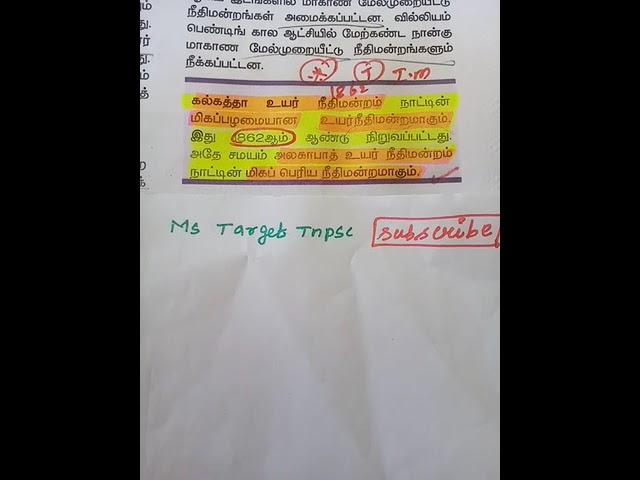 நீதிமன்றங்கள் அமைக்கப்பட்டன. வில்லியம்
பெண்டிங் கால ஆட்சியில் மேற்கண்ட நான்கு
மாகாண மேல்முறையீட்டு நீதிமன்றங்களும்
நீக்கப்பட்டன.
T T.M
1862
கல்கத்தா உயர் நீதிமன்றம் நாட்டின்
மிகப்பழமையான உயர்நீதிமன்றமாகும்.
இது 1862ஆம் ஆண்டு நிறுவப்பட்டது.
அதே சமயம் அலகாபாத் உயர் நீதிமன்றம்
நாட்டின் மிகப் பெரிய நீதிமன்றமாகும்.
Ms Target Tnpsc subscribe